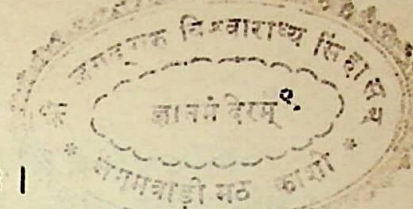 जगद्गुरु विश्वाराध्य सिंहास
ज्ञानमंदिरम्
जंगमवाड़ी मठ काशी
।